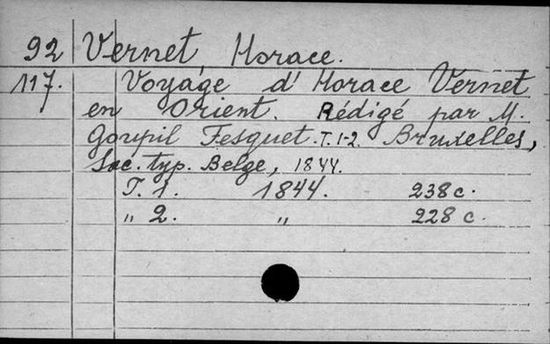 92 Vernet, Horace.
117. Voyage d'Horace Vernet
en Orient. Rédigé par M.
Goupil Fesquet. T. 1-2. Bruxelles,
Soc. typ. Belge, 1844.
T. 1. 1844. 238 c.
„ 2. „ 228 c.